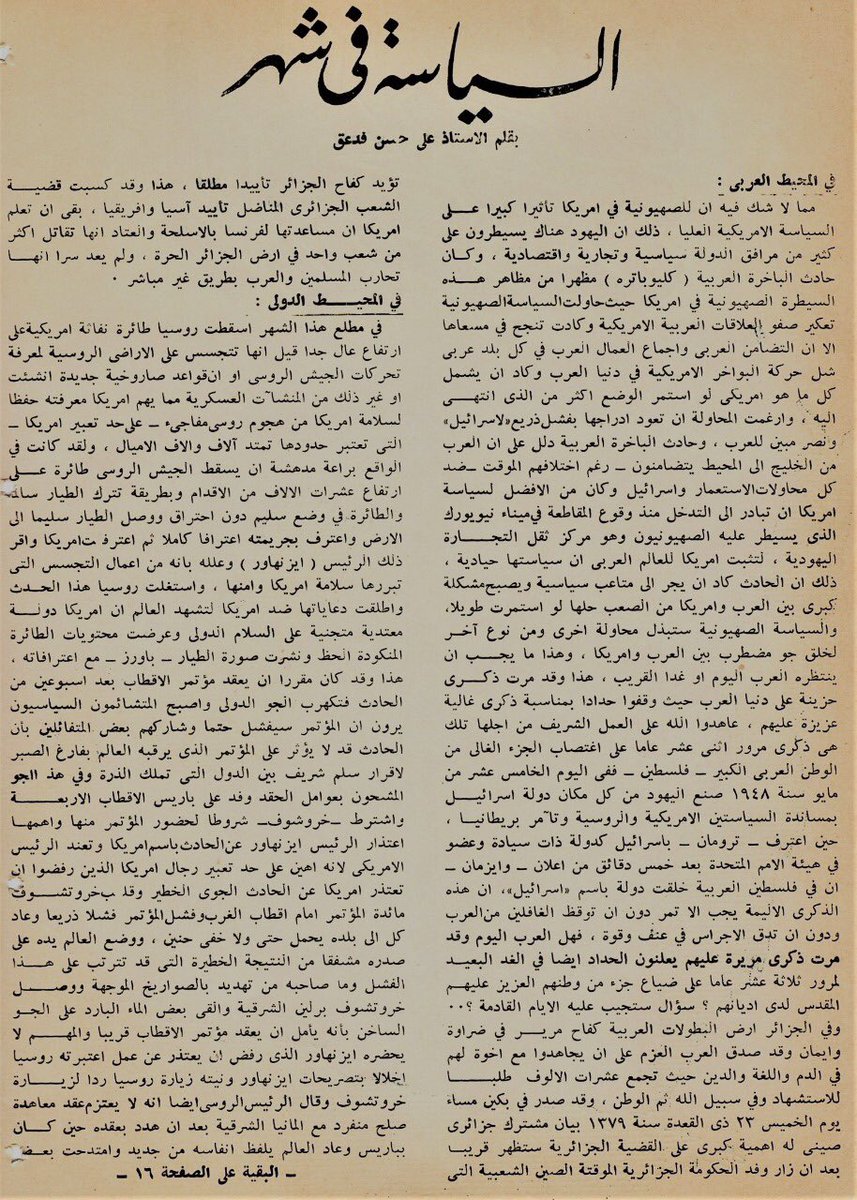 السياسة في شهر
بقلم الاستاذ على حسن فدعق
في المحيط العربى :
مما لا شك فيه ان للصهيونية في امريكا تأثيرا كبيرا على
السياسة الامريكية العليا ، ذلك ان اليهود هناك يسيطرون على
كثير من مرافق الدولة سياسية وتجارية واقتصادية ، وكان
حادث الباخرة العربية ( كليوباتره ) مظهرا من مظاهر هذه
السيطرة الصهيونية في امريكا حيث حاولت السياسة الصهيونية
تعكير صفو العلاقات العربية الامريكية وكادت تنجح في مسعاها
الا ان التضامن العربى واجماع العمال العرب في كل بلد عربى
شل حركة البواخر الامريكية في دنيا العرب وكاد ان يشمل
كل ما هو امريكى لو استمر الوضع اكثر من الذى انتهى
اليه ، وارغمت المحاولة ان تعود ادراجها بفشل ذريع «لاسرائيل»
ونصر مبين للعرب ، وحادث الباخرة العربية دلل على ان العرب
من الخليج الى المحيط يتضامنون – رغم اختلافهم الموقت – ضد
كل محاولات الاستعمار واسرائيل وكان من الافضل لسياسة
امريكا ان تبادر الى التدخل منذ وقوع المقاطعة في ميناء نيويورك
الذى يسيطر عليه الصهيونيون وهو مركز ثقل التجارة
اليهودية ، لتثبت امريكا للعالم العربى ان سياستها حيادية ،
ذلك ان الحادث كاد ان يجر الى متاعب سياسية ويصبح مشكلة
كبرى بين العرب وامريكا من الصعب حلها لو استمرت طويلا،
والسياسة الصهيونية ستبذل محاولة اخرى ومن نوع آخر
لخلق جو مضطرب بين العرب وامريكا ، وهذا ما يجب ان
ينتظره العرب اليوم او غدا القريب ، هذا وقد مرت ذكرى
حزينة على دنيا العرب حيث وقفوا حدادا بمناسبة ذكرى غالية
عزيزة عليهم ، عاهدوا الله على العمل الشريف من اجلها تلك
هى ذكرى مرور اثنى عشر عاما على اغتصاب الجزء الغالى من
الوطن العربى الكبير – فلسطين – ففى اليوم الخامس عشر من
مايو سنة ١٩٤٨ صنع اليهود من كل مكان دولة اسرائيل
بمساندة السياستين الامريكية والروسية وتآمر بريطانيا ،
حين اعترف – ترومان – باسرائيل كدولة ذات سيادة وعضو
في هيئة الامم المتحدة بعد خمس دقائق من اعلان – وايزمان –
ان في فلسطين العربية خلقت دولة باسم «اسرائيل»، ان هذه
الذكرى الاليمة يجب الا تمر دون ان توقظ الغافلين من العرب
ودون ان تدق الاجراس في عنف وقوة ، فهل العرب اليوم وقد
مرت ذكرى مريرة عليهم يعلنون الحداد ايضا في الغد البعيد
لمرور ثلاثة عشر عاما على ضياع جزء من وطنهم العزيز عليهم
المقدس لدى اديانهم ؟ سؤال ستجيب عليه الايام القادمة ؟٠٠
وفي الجزائر ارض البطولات العربية كفاح مرير في ضراوة
وايمان وقد صدق العرب العزم على ان يجاهدوا مع اخوة لهم
في الدم واللغة والدين حيث تجمع عشرات الالوف طلبا
للاستشهاد وفي سبيل الله ثم الوطن ، وقد صدر في بكين مساء
يوم الخميس ٢٣ ذى القعدة سنة ١٣٧٩ بيان مشترك جزائرى
صينى له اهمية كبرى على القضية الجزائرية ستظهر قريبا
بعد ان زار وفد الحكومة الجزائرية الموقتة الصين الشعبية التى
تؤيد كفاح الجزائر تأييدا مطلقا ، هذا وقد كسبت قضية
الشعب الجزائرى المناضل تأييد آسيا وافريقيا ، بقى ان تعلم
امريكا ان مساعدتها لفرنسا بالاسلحة والعتاد انها تقاتل اكثر
من شعب واحد في ارض الجزائر الحرة ، ولم يعد سرا انها
تحارب المسلمين والعرب بطريق غير مباشر ٠
في المحيط الدولى :
في مطلع هذا الشهر اسقطت روسيا طائرة نفاثة امريكية على
ارتفاع عال جدا قيل انها تتجسس على الاراضى الروسية لمعرفة
تحركات الجيش الروسى او ان قواعد صاروخية جديدة انشئت
او غير ذلك من المنشآت العسكرية مما يهم امريكا معرفته حفظا
لسلامة امريكا من هجوم روسى مفاجىء – على حد تعبير امريكا –
التى تعتبر حدودها تمتد آلاف والاف الاميال ، ولقد كانت في
الواقع براعة مدهشة ان يسقط الجيش الروسى طائرة على
ارتفاع عشرات الالاف من الاقدام وبطريقة تترك الطيار سالما
والطائرة في وضع سليم دون احتراق ووصل الطيار سليما الى
الارض واعترف بجريمته اعترافا كاملا ثم اعترفت امريكا واقر
ذلك الرئيس ( ايزنهاور ) وعلله بانه من اعمال التجسس التى
تبررها سلامة امريكا وامنها ، واستغلت روسيا هذا الحدث
واطلقت دعاياتها ضد امريكا لتشهد العالم ان امريكا دولة
معتدية متجنية على السلام الدولى وعرضت محتويات الطائرة
المنكودة الحظ ونشرت صورة الطيار – باورز – مع اعترافاته ،
هذا وقد كان مقررا ان يعقد مؤتمر الاقطاب بعد اسبوعين من
الحادث فتكهرب الجو الدولى واصبح المتشائمون السياسيون
يرون ان المؤتمر سيفشل حتما وشاركهم بعض المتفائلين بأن
الحادث قد لا يؤثر على المؤتمر الذى يرقبه العالم بفارغ الصبر
لاقرار سلم شريف بين الدول التى تملك الذرة وفي هذ االجو
المشحون بعوامل الحقد وفد على باريس الاقطاب الاربعة
واشترط – خروشوف – شروطا لحضور المؤتمر منها واهمها
اعتذار الرئيس ايزنهاور عن الحادث باسم امريكا وتعند الرئيس
الامريكى لانه اهين على حد تعبير رجال امريكا الذين رفضوا ان
تعتذر امريكا عن الحادث الجوى الخطير وقلب خروتشوف
مائدة المؤتمر امام اقطاب الغرب وفشل المؤتمر فشلا ذريعا وعاد
كل الى بلده يحمل حتى ولا خفى حنين ، ووضع العالم يده على
صدره مشفقا من النتيجة الخطيرة التى قد تترتب على هذا
الفشل وما صاحبه من تهديد بالصواريخ الموجهة ووصل
خروتشوف برلين الشرقية والقى بعض الماء البارد على الجو
الساخن بأنه يأمل ان يعقد مؤتمر الاقطاب قريبا والمهم لا
يحضره ايزنهاور الذى رفض ان يعتذر عن عمل اعتبرته روسيا
اخلالا بتصريحات ايزنهاور ونيته زيارة روسيا ردا لزيارة
خروتشوف وقال الرئيس الروسى ايضا انه لا يعتزم عقد معاهدة
صلح منفرد مع المانيا الشرقية بعد ان هدد بعقده حين كان
بباريس وعاد العالم يلفظ انفاسه من جديد وامتدحت بعض
– البقية على الصفحة ١٦ –